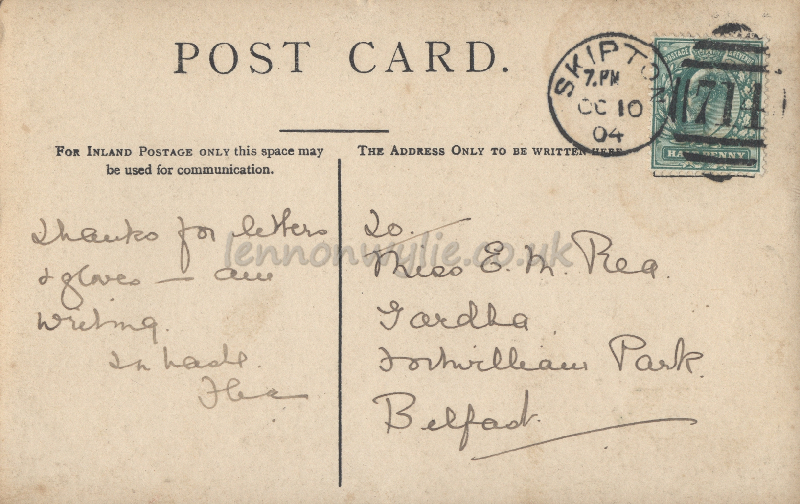 POST CARD.
SKIPTON
7.PM
OC 10
04
714
POSTAGE
HALFPENNY
FOR INLAND POSTAGE ONLY this space may
be used for communication.
THE ADDRESS ONLY TO BE WRITTEN HERE
Thanks for letters
& gloves — am
writing.
In haste.
To.
Miss E. M. Rea.
Gardha
Fortwilliam Park.
Belfast.
lennonwylie.co.uk